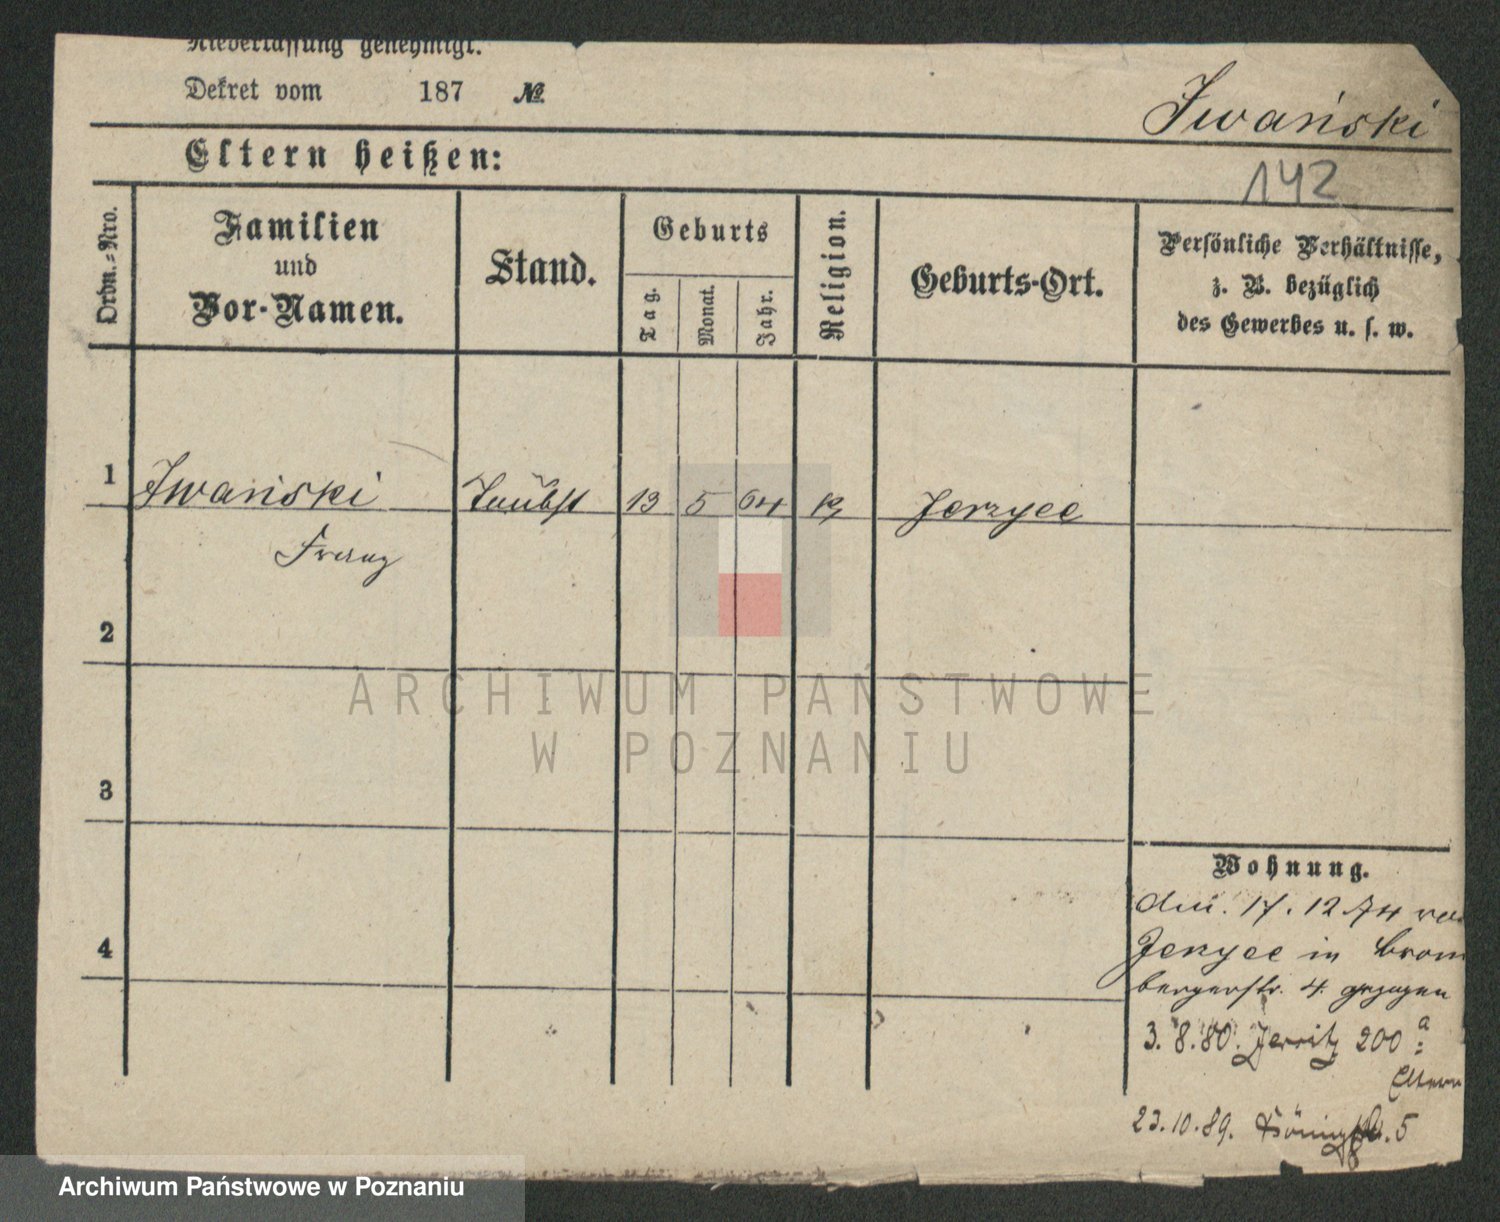 Niederlassung genehmigt.
Dekret vom 187 №
Iwański
Eltern heißen:
142
Ordn.-Nro.
Familien
und
Vor-Namen.
Stand.
Geburts
Tag.
Monat.
Jahr.
Religion.
Geburts-Ort.
Persönliche Verhältnisse,
z. B. bezüglich
des Gewerbes u. s. w.
1 Iwański 13 5 64 k Jerzyce
Franz
2
3
4
Wohnung.
den 17. 12 74 von
Jerzyce in Brom
bergerstr. 4 gezogen
3. 8. 80. 200 a
Eltern
23. 10. 89. 5
ARCHIWUM PAŃSTWOWE
W POZNANIU
Archiwum Państwowe w Poznaniu